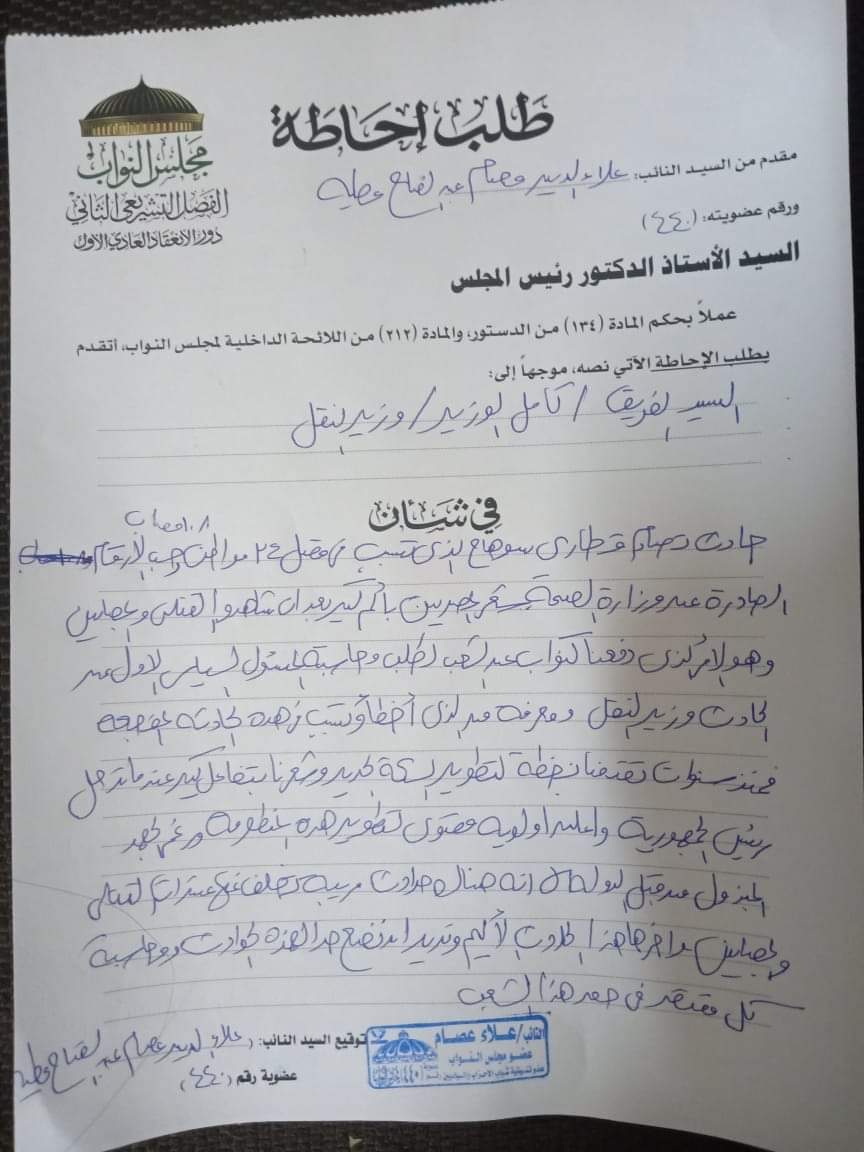 طلب إحاطة
مجلس النواب
الفصل التشريعى الثانى
دور الانعقاد العادى الأول
مقدم من السيد النائب: علاء الدين عصام عبد الفتاح عطيه
ورقم عضويته: (٤٤٠)
السيد الأستاذ الدكتور رئيس المجلس
عملاً بحكم المادة (١٣٤) من الدستور، والمادة (٢١٢) من اللائحة الداخلية لمجلس النواب، أتقدم
بطلب الإحاطة الآتي نصه، موجهاً إلى:
السيد الفريق / كامل الوزير / وزير النقل
في شأن
حادث تصادم قطارى سوهاج الذى تسبب فى مقتل ٣٢ مواطن حسب الأرقام
الصادرة عن وزارة الصحة يشعر المصريين بألم كبير بعد ان شاهدوا القتلى والمصابين
وهو الامر الذى دفعنا كنواب عن الشعب لطلب محاسبة المسئول السياسى الاول عن
الحادث وزير النقل ومعرفة من الذى أخطأ وتسبب فى هذه الحادثه المفجعه
فمنذ سنوات لتطوير السكة الحديد وشعرنا بتفاعل كبير عندما تدخل
رئيس الجمهورية واعلن اولويه تطوير هذه المنظومه ورغم الجهد
المبذول من قبل الدولة الا انه هناك حوادث مريبه تخلف عنها عشرات القتلى
والمصابين واخرها هذا الحادث الأليم ونريد ان نضع حدا لهذه الحوادث ومحاسبة
كل مقصر فى حق هذا الشعب
توقيع السيد النائب: (علاء الدين عصام عبد الفتاح عطيه
عضوية رقم (٤٤٠)
النائب/علاء عصام
عضو مجلس النواب
عضو تنسيقية شباب الأحزاب والسياسيين